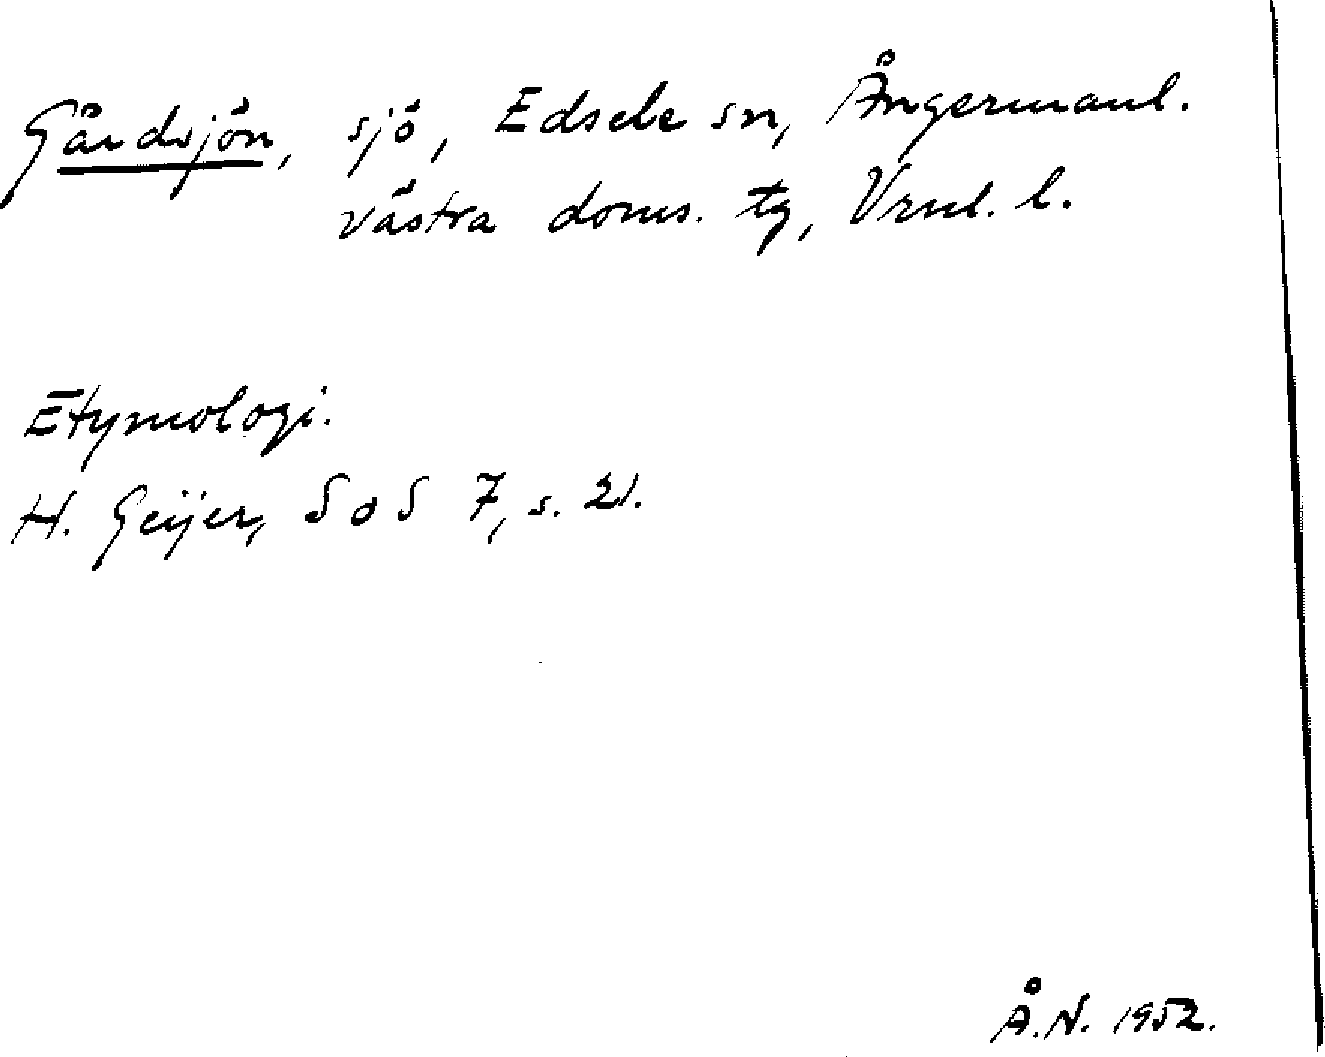 Gärdsjön, sjö, Edsele sn, Ångermanl.
västra doms. tg, Vrnl. l.
Etymologi.
H. Geijer, SoS 7, s. 21.
Å.N. 1952.